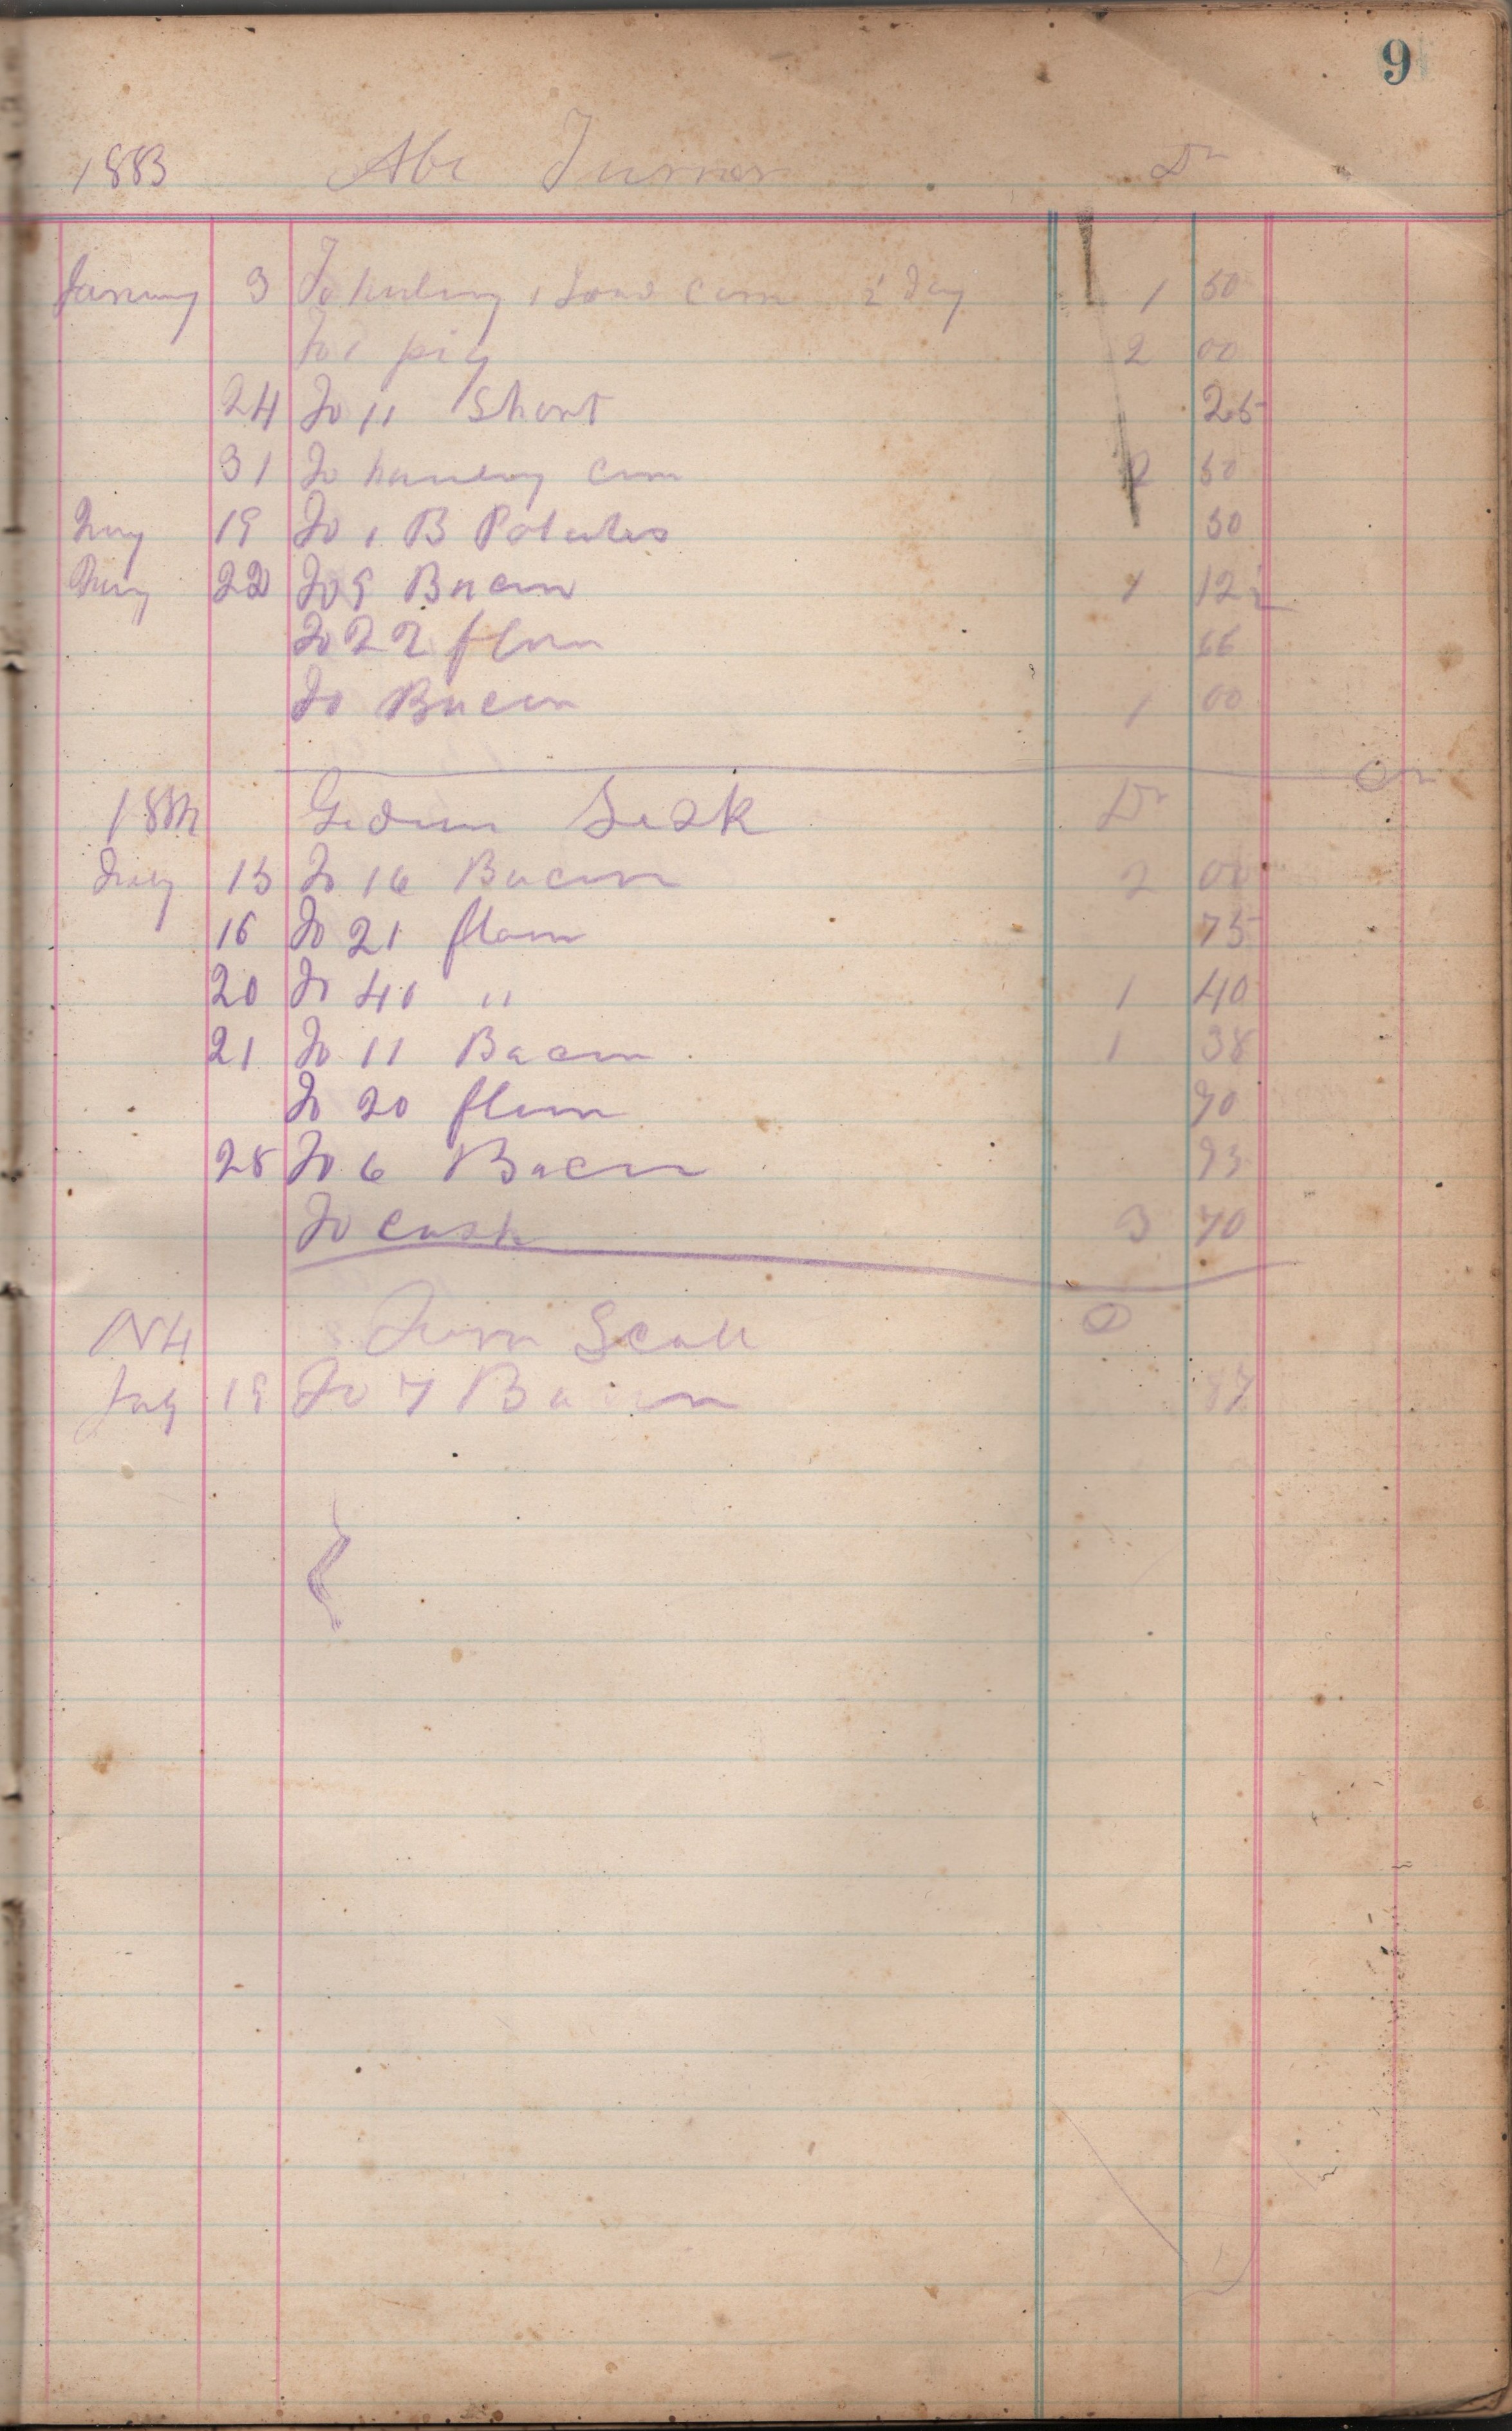 9
1883 Abe Turner Dr
January 3 To 1 Load Corn day 1 50
To 1 pig 2 00
24 To 11 Short 25
31 To hauling Corn 2 50
19 To 1 B Potatoes 50
22 To 9 Bacon 1 12½
To 22 flour 66
To Bacon 1 00
Cr
Sisk Dr
July 13 To 16 Bacon 2 00
16 To 21 flour 75
20 To 40 " 1 40
21 To 11 Bacon 1 38
To 20 flour 70
28 To 6 Bacon
To cash 3 70
Scott
July 19 To 7 Bacon 87